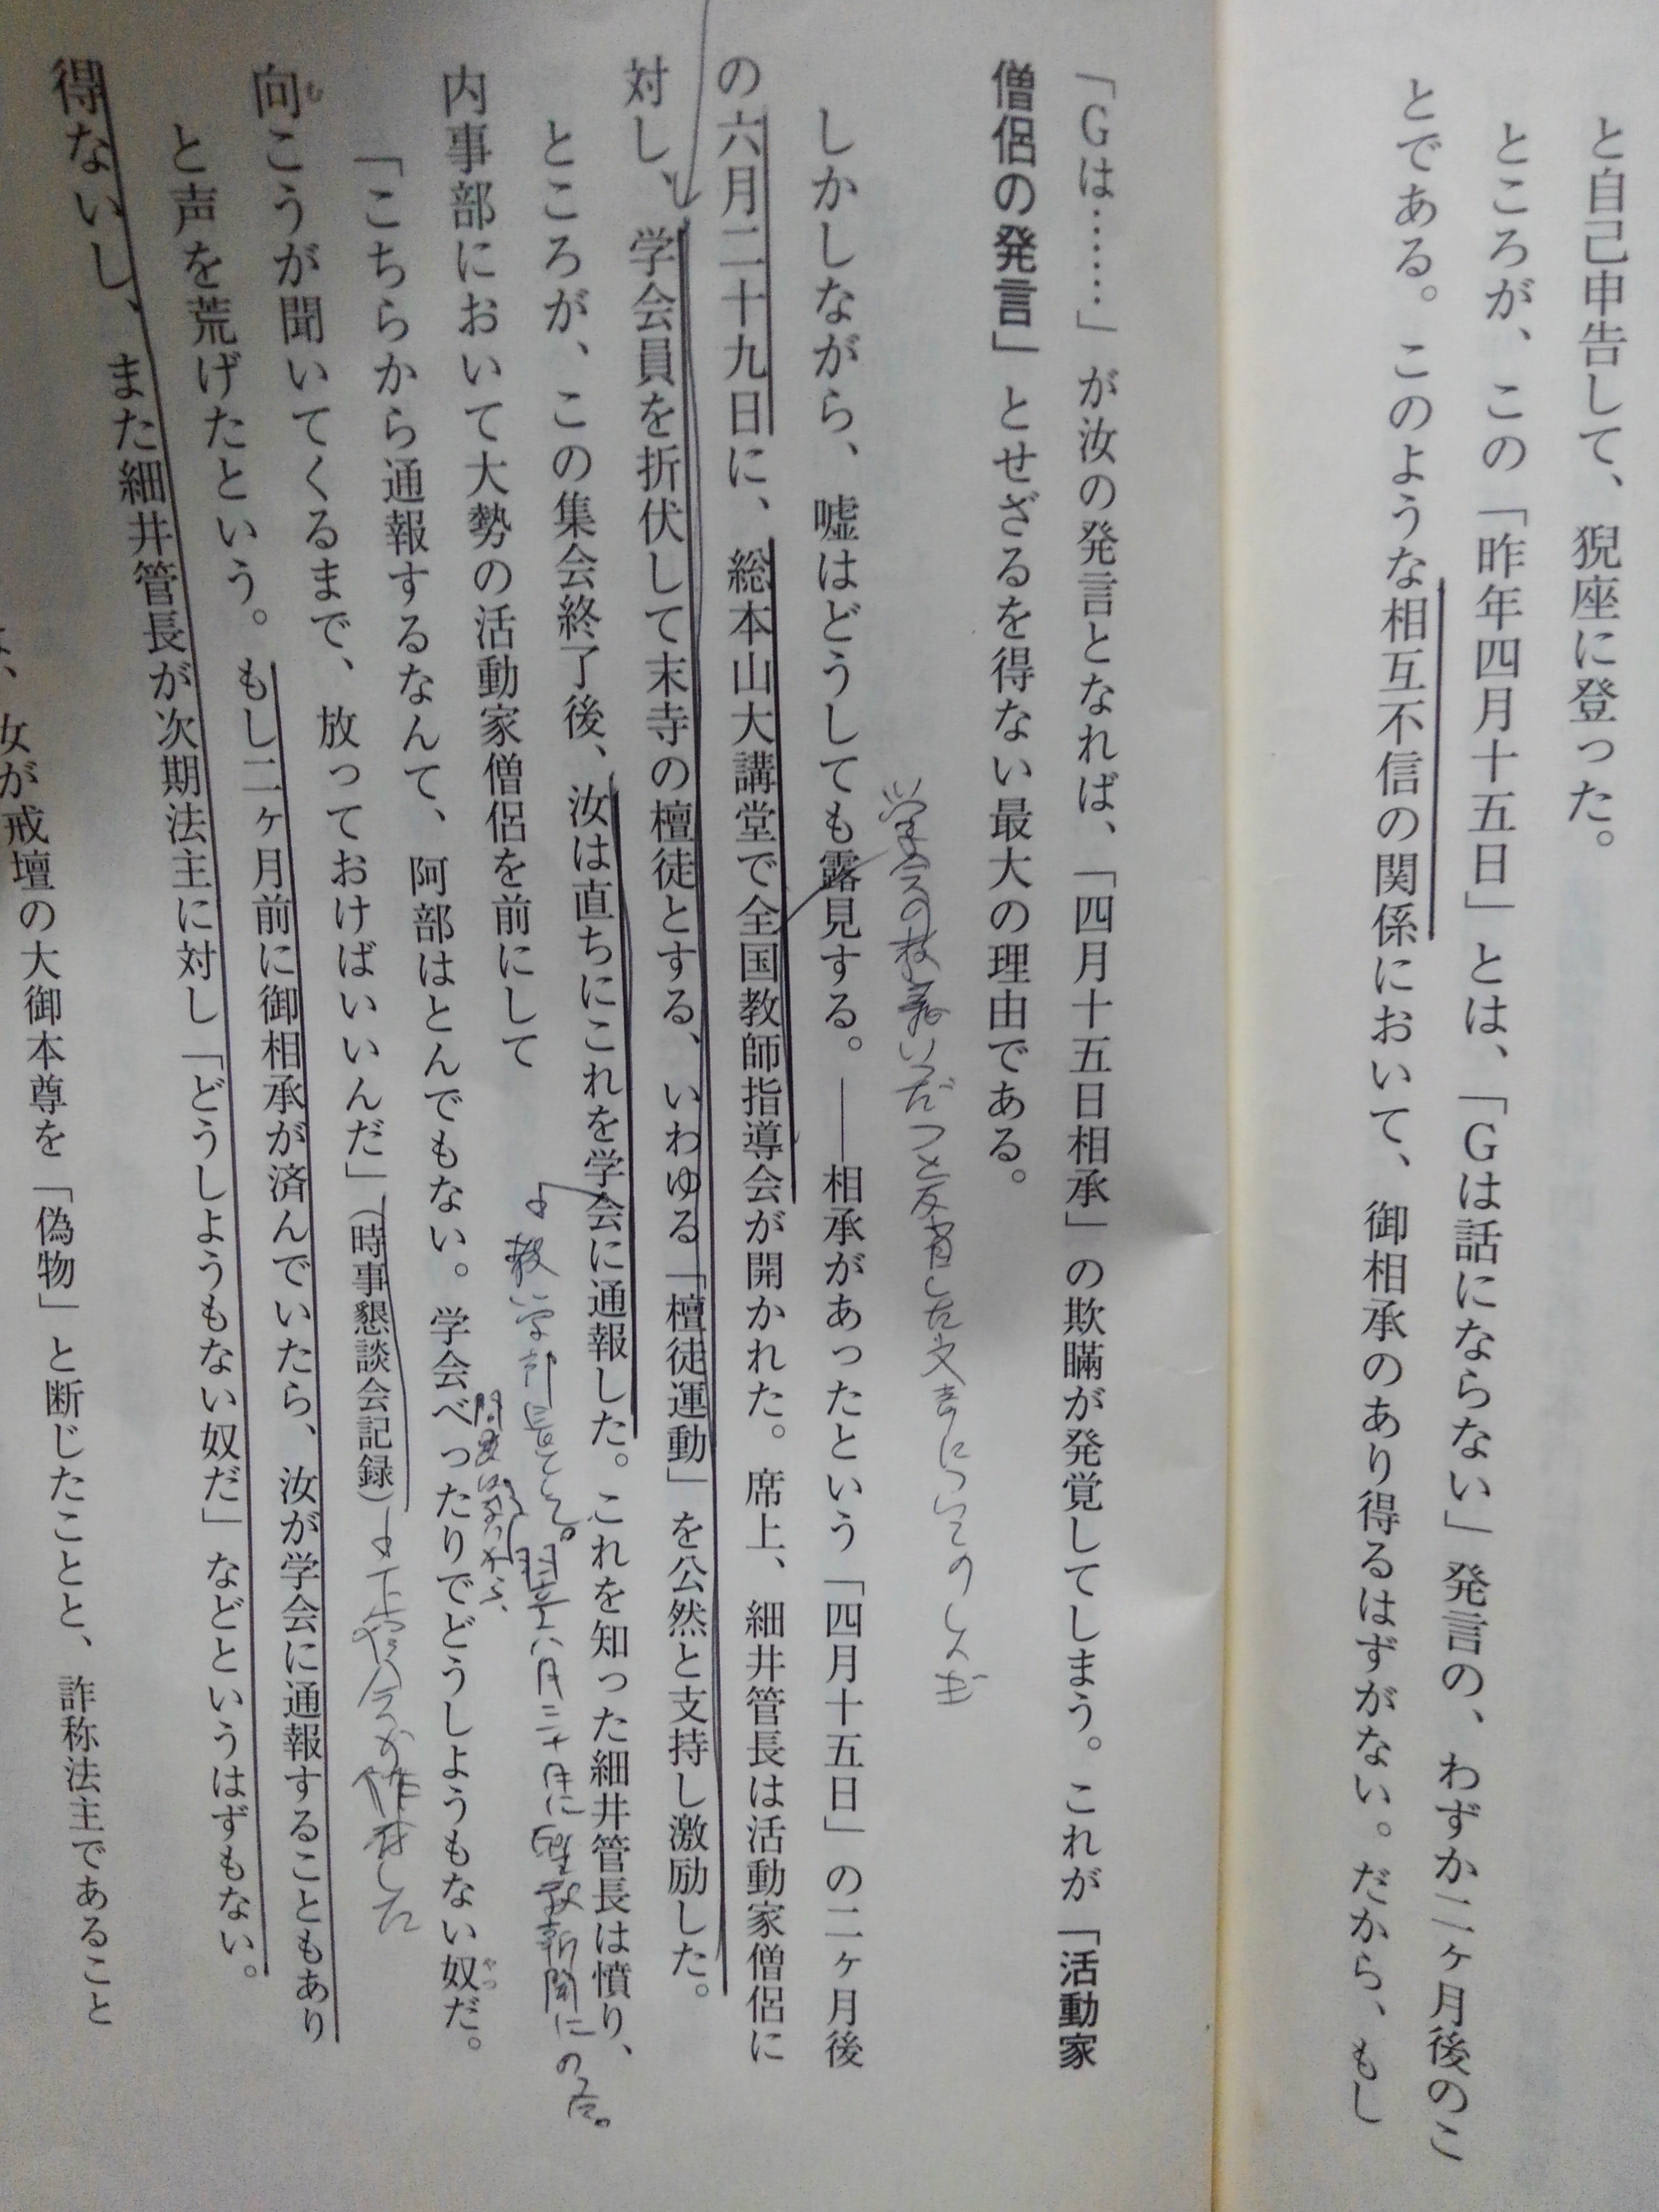 と自己申告して、猊座に登った。
ところが、この「昨年四月十五日」とは、「Gは話にならない」発言の、わずか二ヶ月後のこ
とである。このような相互不信の関係において、御相承のあり得るはずがない。だから、もし
「Gは……」が汝の発言となれば、「四月十五日相承」の欺瞞が発覚してしまう。これが「活動家
僧侶の発言」とせざるを得ない最大の理由である。
学会の教義いつだつと反省した文書についての
しかしながら、嘘はどうしても露見する。――相承があったという「四月十五日」の二ヶ月後
の六月二十九日に、総本山大講堂で全国教師指導会が開かれた。席上、細井管長は活動家僧侶に
対し、学会員を折伏して末寺の檀徒とする、いわゆる「檀徒運動」を公然と支持し激励した。
ところが、この集会終了後、汝は直ちにこれを学会に通報した。これを知った細井管長は憤り、
教学部長として。翌六月三十日に聖教新聞にのる。
内事部において大勢の活動家僧侶を前にして
「こちらから通報するなんて、阿部はとんでもない。学会べったりでどうしようもない奴だ。
やつ
向こうが聞いてくるまで、放っておけばいいんだ」（時事懇談会記録）
む
が作成した
と声を荒げたという。もし二ヶ月前に御相承が済んでいたら、汝が学会に通報することもあり
得ないし、また細井管長が次期法主に対し「どうしようもない奴だ」などというはずもない。
、汝が戒壇の大御本尊を「偽物」と断じたことと、詐称法主であること